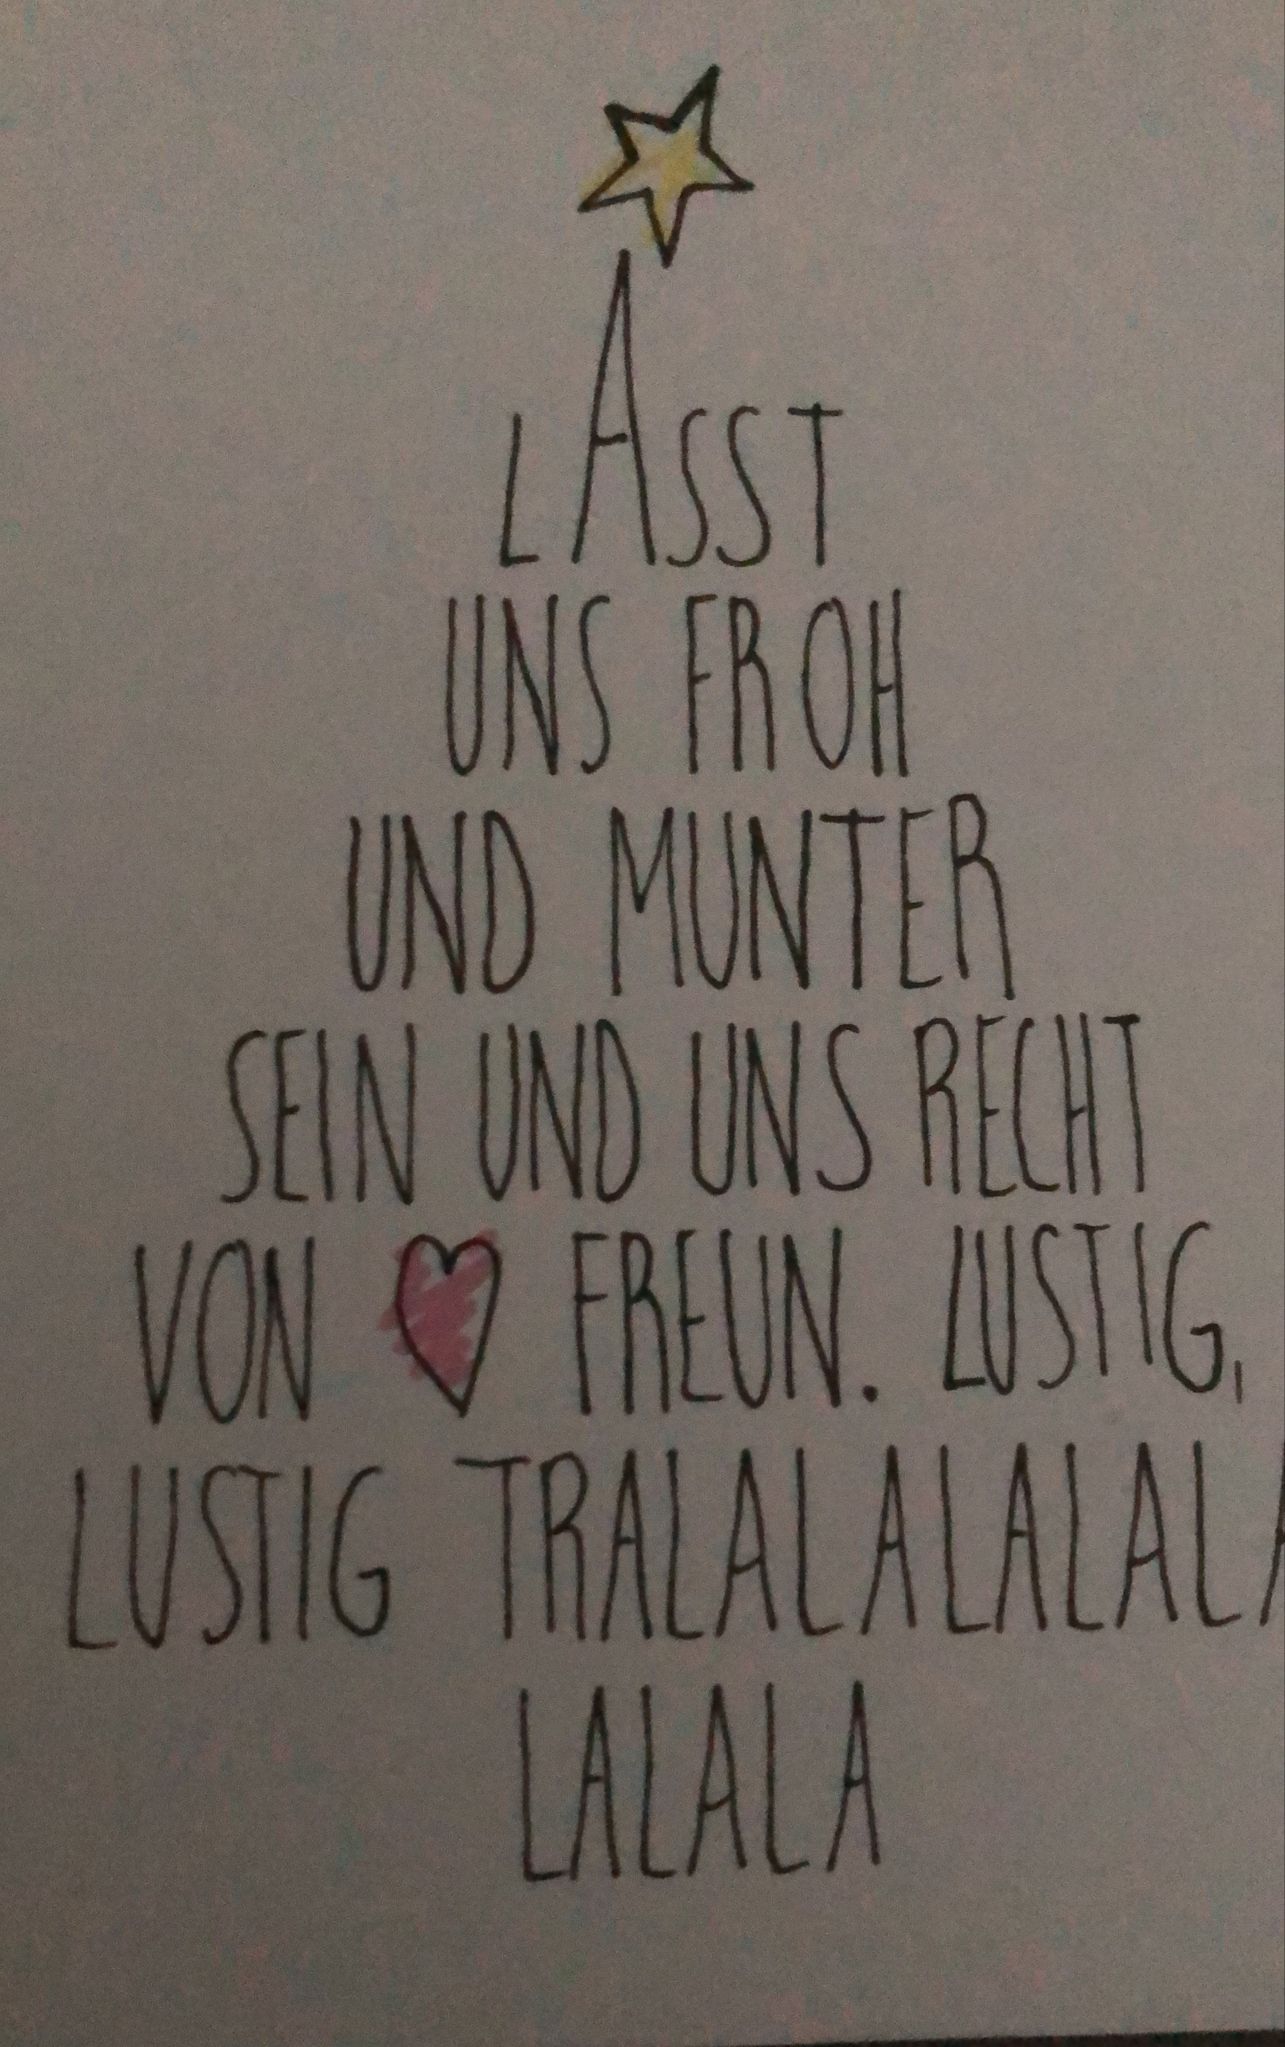 LASST
UNS FROH
UND MUNTER
SEIN UND UNS RECHT
VON ♥ FREUN. LUSTIG,
LUSTIG TRALALALALALA
LALALA